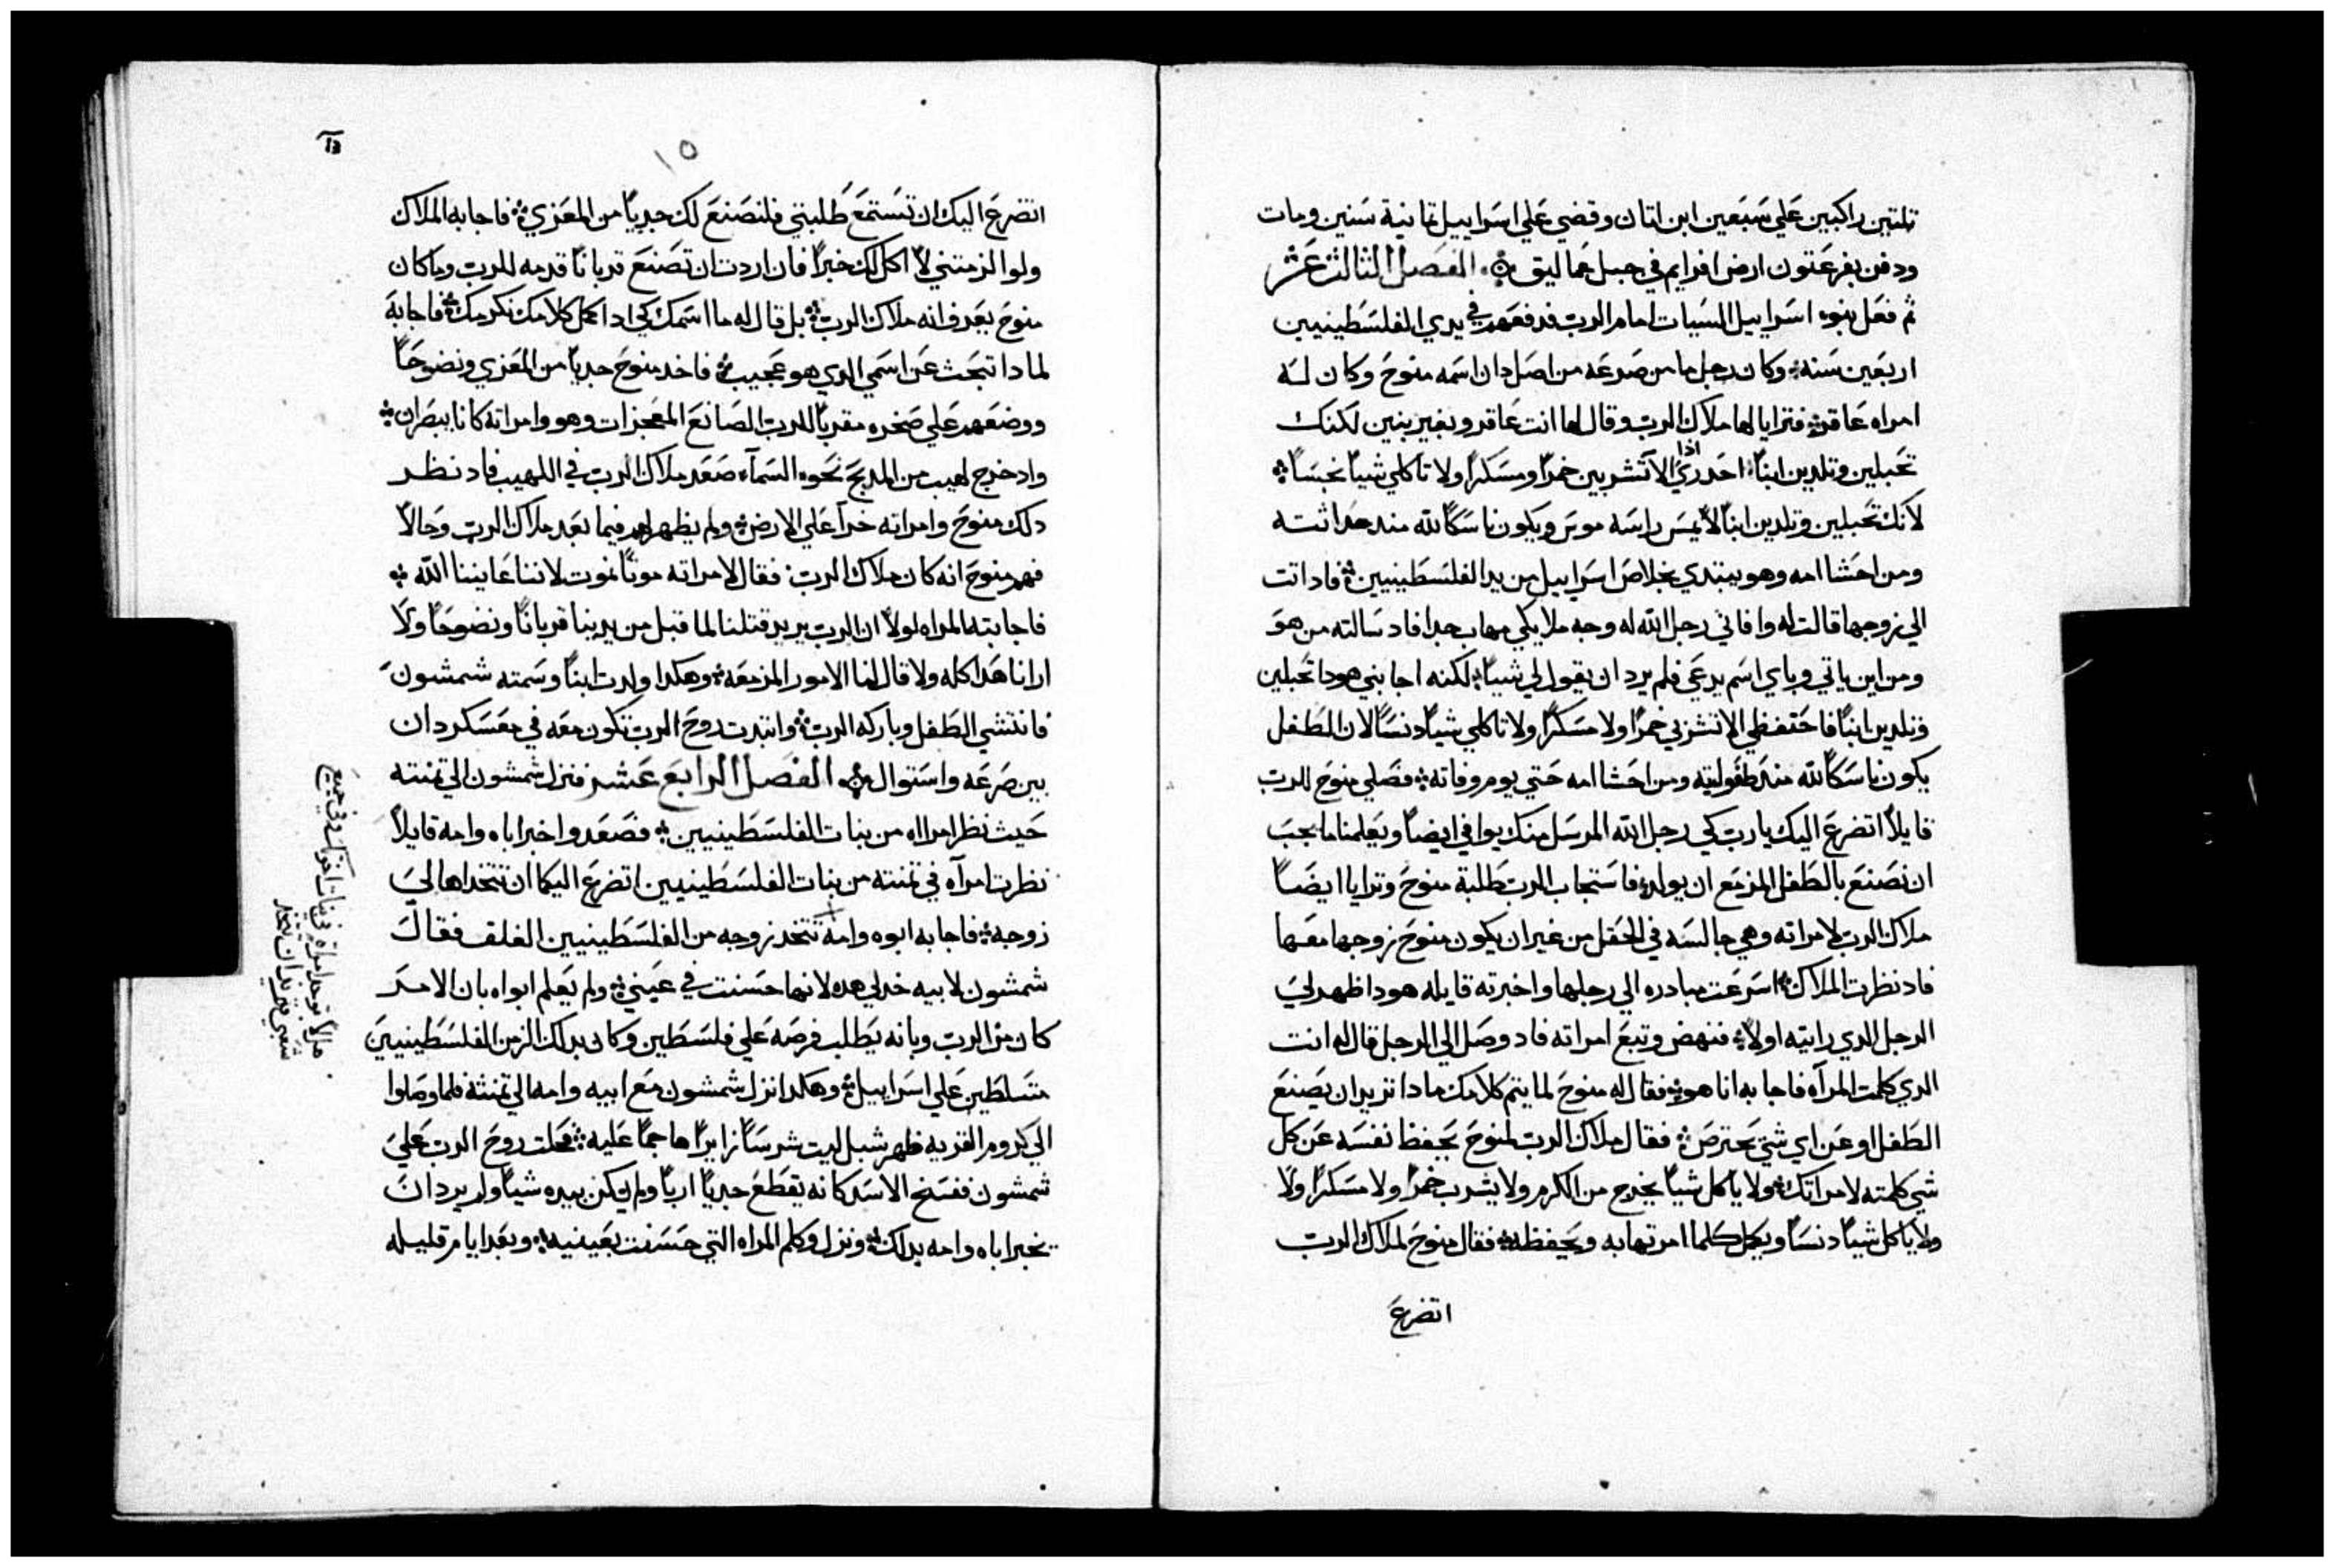 تلتين راكبين علي سبعين ابن اتان وقضي علي اسراييل تمانية سنين ومات
ودفن بفرعتون ارض افرايم في جبل عماليق الفصل الثالث عشر
ثم فعل بنوا اسراييل السيات امام الرب فدفعهم في يدي الفلسطينيين
اربعين سنه وكان رجل ما من صرعه من اصل دان اسمه منوح وكان له
امراه عاقر فترايا لها ملاك الرب وقال لها انت عاقر وبغير بنين لكنك
تحبلين وتلدين ابنا احدري اذا الا تشربين خمرا ومسكرا ولا تاكلي شيا نجسا
لانك تحبلين وتلدين ابنا لا يمس راسه موس ويكون ناسكا لله مند حداثته
ومن احشا امه وهو يبتدي بخلاص اسراييل من يد الفلسطينيين فاد اتت
الي زوجها قالت له وافاني رجل الله له وجه ملايكي مهاب جدا فاد سالته من هو
ومن اين ياتي وباي اسم يدعي فلم يرد ان يقول لي شيا لكنه اجابني هودا تحبلين
وتلدين ابنا فاحتفظي الا تشربي خمرا ولا مسكرا ولا تاكلي شيا دنسا لان الطفل
يكون ناسكا لله مند طفوليته ومن احشا امه حتي يوم وفاته فصلي منوح للرب
قايلا اتضرع اليك يا رب كي رجل الله المرسل منك يوافي ايضا ويعلمنا ما يجب
ان نصنع بالطفل المزمع ان يولد فاستجاب الرب طلبة منوح وترايا ايضا
ملاك الرب لامراته وهي جالسه في الحقل من غير ان يكون منوح زوجها معها
فاد نظرت الملاك اسرعت مبادره الي رجلها واخبرته قايله هودا ظهر لي
الرجل الدي رايته اولا فنهض وتبع امراته فاد وصل الي الرجل قال له انت
الدي كلمت المراه فاجابه انا هو فقال له منوح لما يتم كلامك مادا تريد ان يصنع
الطفل او عن اي شي يحترص فقال ملاك الرب لمنوح يحفظ نفسه عن كل
شي كلمته لامراتك ولا ياكل شيا يخرج من الكرم ولا يشرب خمرا ولا مسكرا ولا
ولا ياكل شيا دنسا ويكمل كلما امرتها به ويحفظه فقال منوح لملاك الرب
اتضرع
١٥
اتضرع اليك ان تستمع طلبتي فلنصنع لك جديا من المعزي فاجابه الملاك
ولو الزمتني لا اكل لك خبزا فان اردت ان تصنع قربانا قدمه للرب وما كان
منوح يعرف انه ملاك الرب بل قال له ما اسمك كي ادا كمل كلامك نكرمك فاجابه
لمادا تبحث عن اسمي الدي هو عجيب فاخد منوح جديا من المعزي ونضوحا
ووضعهم علي صخره مقربا للرب الصانع المعجزات وهو وامراته كانا يبصران
واد خرج لهيب من المدبح نحو السماء صعد ملاك الرب في اللهيب فاد نظر
دلك منوح وامراته خرا علي الارض ولم يظهر لهم فيما بعد ملاك الرب وحالا
فهم منوح انه كان ملاك الرب فقال لامراته موتا نموت لاننا عايننا الله
فاجابته المراه لولا ان الرب يريد قتلنا لما قبل من يدينا قربانا ونضوحا ولا
ارانا هدا كله ولا قال لنا الامور المزمعه وهكدا ولدت ابنا وسمته شمشون
فانتشي الطفل وباركه الرب وابتدت روح الرب تكون معه في معسكر دان
بين صرعه واستوال الفصل الرابع عشر فنزل شمشون الي تمنته
حيث نظر امراه من بنات الفلسطينيين فصعد واخبر اباه وامه قايلا
نظرت امراه في تمنته من بنات الفلسطينيين اتضرع اليكما ان تتخداها لي
زوجه فاجابه ابوه وامه تتخد زوجه من الفلسطينيين الغلف فقال
شمشون لابيه خد لي هده لانها حسنت في عيني ولم يعلم ابواه بان الامر
كان من الرب وبانه يطلب فرصه علي فلسطين وكان بدلك الزمن الفلسطينيين
متسلطين علي اسراييل وهكدا نزل شمشون مع ابيه وامه الي تمنته فلما وصلوا
الي كروم القريه ظهر شبل ليت شرسا زايرا هاجما عليه فحلت روح الرب علي
شمشون ففسخ الاسد كانه يقطع جديا اربا ولم يكن بيده شيا ولم يرد ان
يخبر اباه وامه بدلك ونزل وكلم المراه التي حسنت بعينيه وبعد ايام قليله
هلا توجد امراة في بنات اخوتك وفي جميع
شعبي حتي تريد ان تتخد